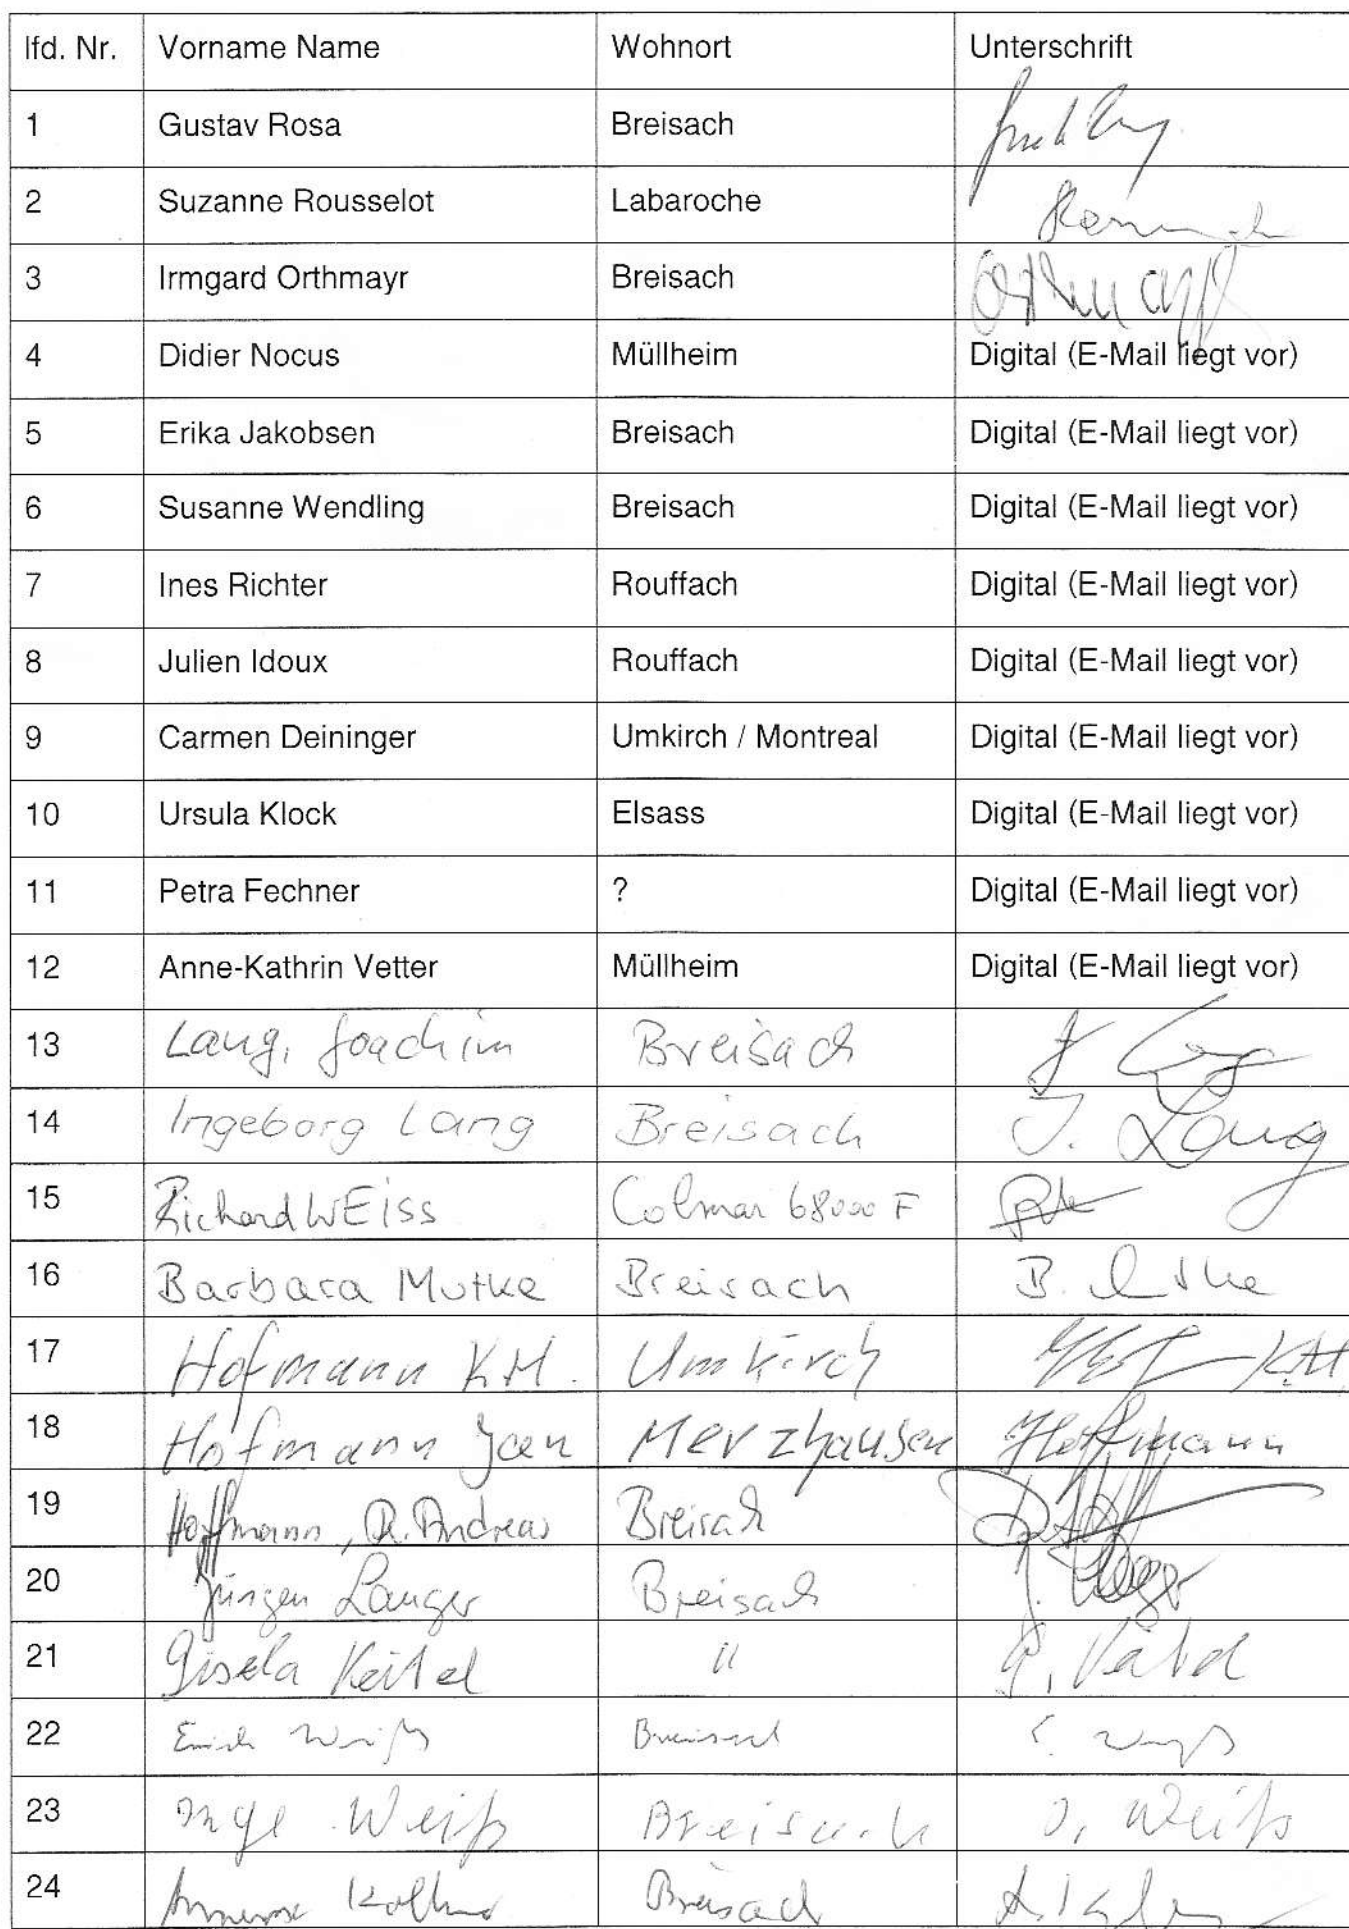 lfd. Nr. Vorname Name Wohnort Unterschrift
1 Gustav Rosa Breisach
2 Suzanne Rousselot Labaroche
3 Irmgard Orthmayr Breisach Orthmayr
4 Didier Nocus Müllheim Digital (E-Mail liegt vor)
5 Erika Jakobsen Breisach Digital (E-Mail liegt vor)
6 Susanne Wendling Breisach Digital (E-Mail liegt vor)
7 Ines Richter Rouffach Digital (E-Mail liegt vor)
8 Julien Idoux Rouffach Digital (E-Mail liegt vor)
9 Carmen Deininger Umkirch / Montreal Digital (E-Mail liegt vor)
10 Ursula Klock Elsass Digital (E-Mail liegt vor)
11 Petra Fechner ? Digital (E-Mail liegt vor)
12 Anne-Kathrin Vetter Müllheim Digital (E-Mail liegt vor)
13 Lang, Joachim Breisach J Lang
14 Ingeborg Lang Breisach I. Lang
15 Richard WEISS Colmar 68000 F
16 Barbara Mutke Breisach B. Mutke
17 Hofmann K.H. Umkirch K.H.
18 Hofmann Jan Merzhausen Hoffmann
19 Hoffmann, R. Andreas Breisach
20 Jürgen Langer Breisach J. Langer
21 Gisela Keitel " G. Keitel
22 Erich Weiß Breisach E. Weiß
23 Inge Weiß Breisach I. Weiß
24 Breisach